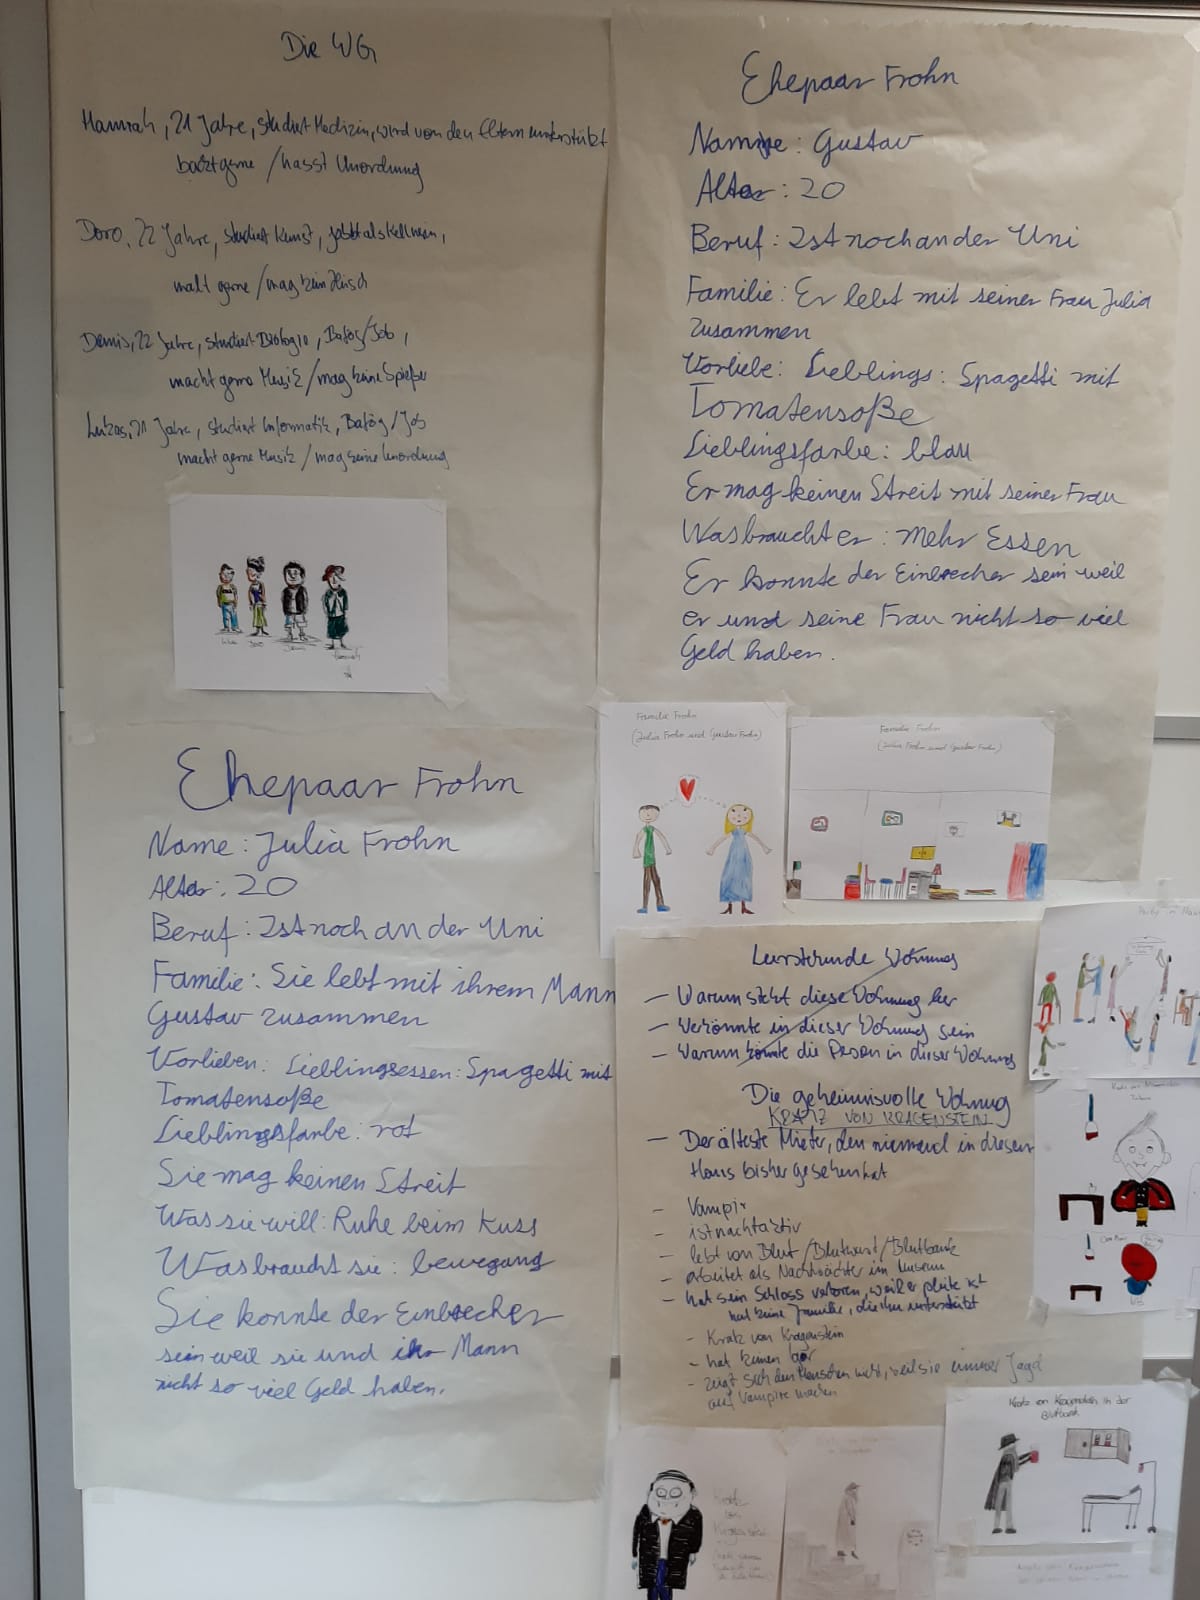 Die WG
Hannah, 21 Jahre, studiert Medizin, wird von den Eltern unterstützt
backt gerne / hasst Unordnung
Doro, 22 Jahre, studiert Kunst, jobbt als Kellnerin,
malt gerne / mag kein Fleisch
Dennis, 22 Jahre, studiert Biologie, Bafög/Job,
macht gerne Musik / mag keine Spießer
Lukas, 21 Jahre, studiert Informatik, Bafög/Job
macht gerne Musik / mag keine Unordnung
Ehepaar Frohn
Name: Gustav
Alter: 20
Beruf: Ist noch an der Uni
Familie: Er lebt mit seiner Frau Julia
zusammen
Vorliebe: Lieblings: Spagetti mit
Tomatensoße
Lieblingsfarbe: blau
Er mag keinen Streit mit seiner Frau
Was braucht er: mehr Essen
Er konnte der Einbrecher sein weil
er und seine Frau nicht so viel
Geld haben.
Ehepaar Frohn
Name: Julia Frohn
Alter: 20
Beruf: Ist noch an der Uni
Familie: Sie lebt mit ihrem Mann
Gustav zusammen
Vorlieben: Lieblingsessen: Spagetti mit
Tomatensoße
Lieblingsfarbe: rot
Sie mag keinen Streit
Was sie will: Ruhe beim Kuss
Was braucht sie: bewegung
Sie konnte der Einbrecher
sein weil sie und ihr Mann
nicht so viel Geld haben.
Familie Frohn
(Julia Frohn und Gustav Frohn)
Familie Frohn
(Julia Frohn und Gustav Frohn)
Leerstehende Wohnung
- Warum steht diese Wohnung leer
- Wer könnte in dieser Wohnung sein
- Warum könnte die Person in dieser Wohnung
Die geheimnisvolle Wohnung
KRATZ VON KRAGENSTEIN
- Der älteste Mieter, den niemand in diesem
Haus bisher gesehen hat
- Vampir
- ist nachtaktiv
- lebt von Blut / Blutwurst / Blutbank
- arbeitet als Nachtwächter im Museum
- hat sein Schloss verloren, weil er pleite ist
hat keine Familie, die ihn unterstützt
- Kratz von Kragenstein
- hat keinen
- zeigt sich den Menschen nicht, weil sie immer Jagd
auf Vampire machen
Kratz von Kragenstein in der
Blutbank